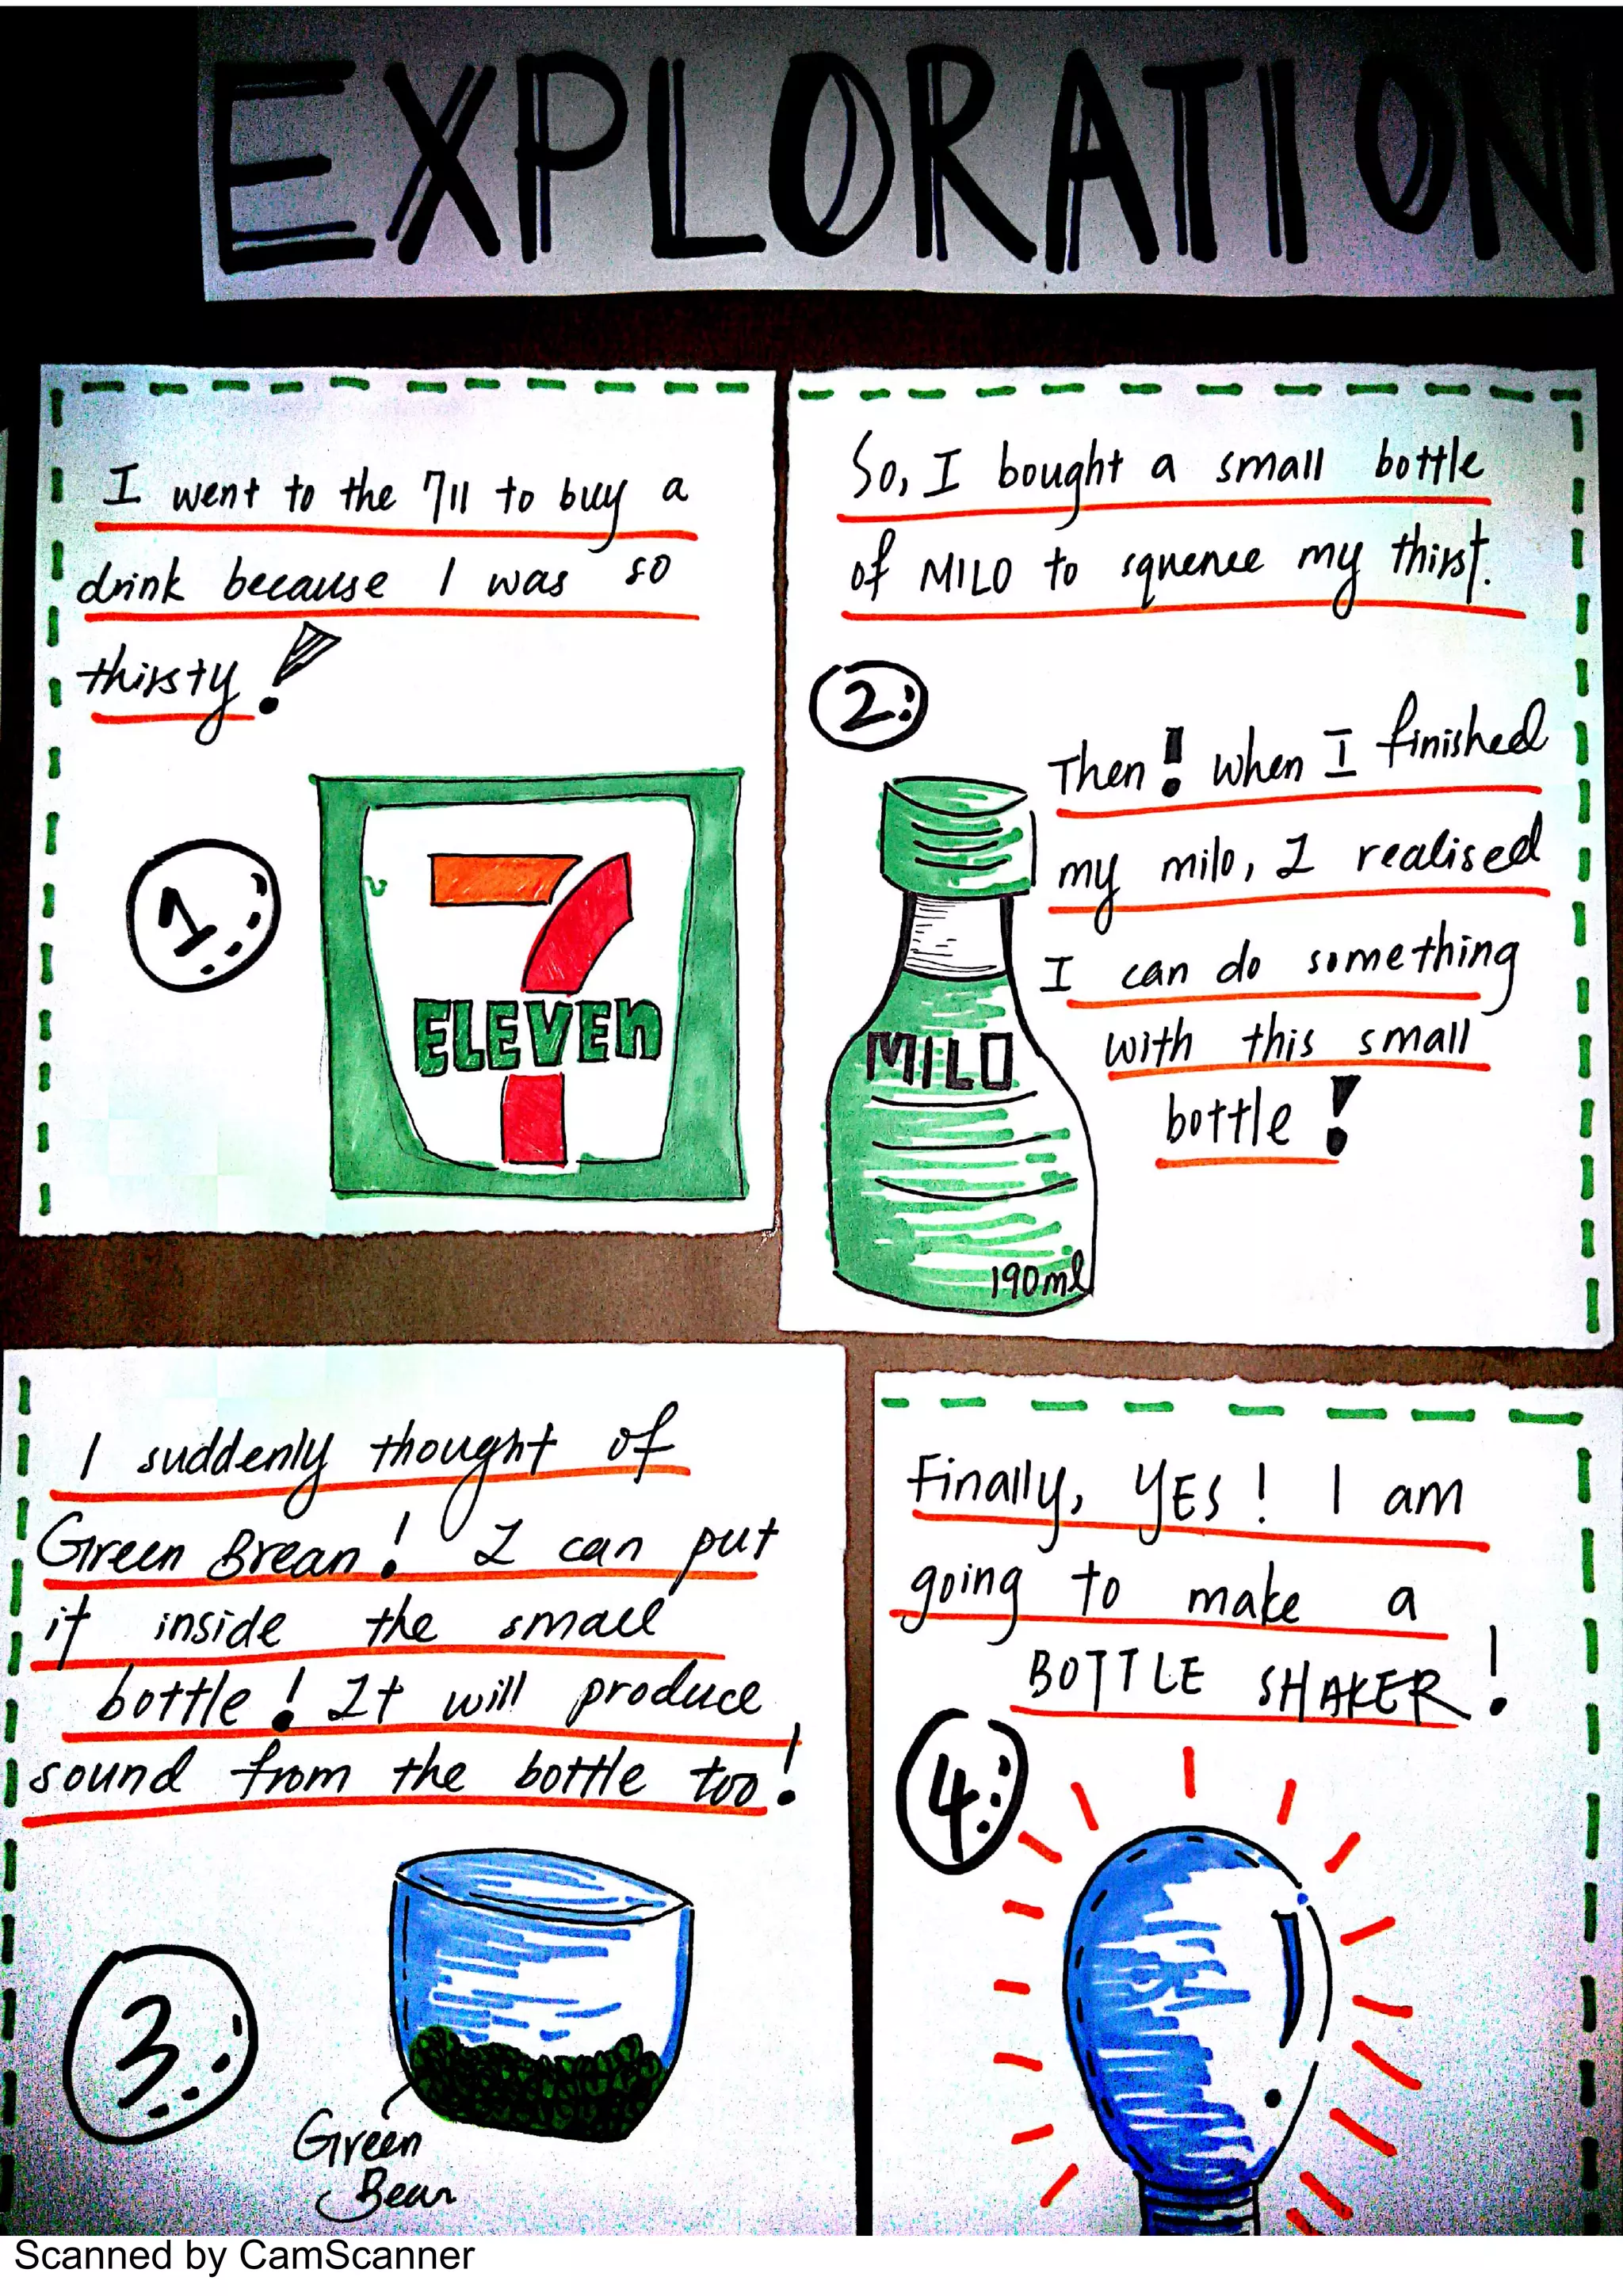 EXPLORATION
I went to the 711 to buy a
drink because I was so
thirsty!
1.
7
ELEVEn
So, I bought a small bottle
of MILO to squence my thirst.
2.
Then! when I finished
my milo, I realised
I can do something
with this small
bottle!
MILO
190ml
I suddenly thought of
Green Brean! I can put
it inside the small
bottle! It will produce
sound from the bottle too!
3.
Green
Bean
Finally, YES! I am
going to make a
BOTTLE SHAKER!
4.
Scanned by CamScanner